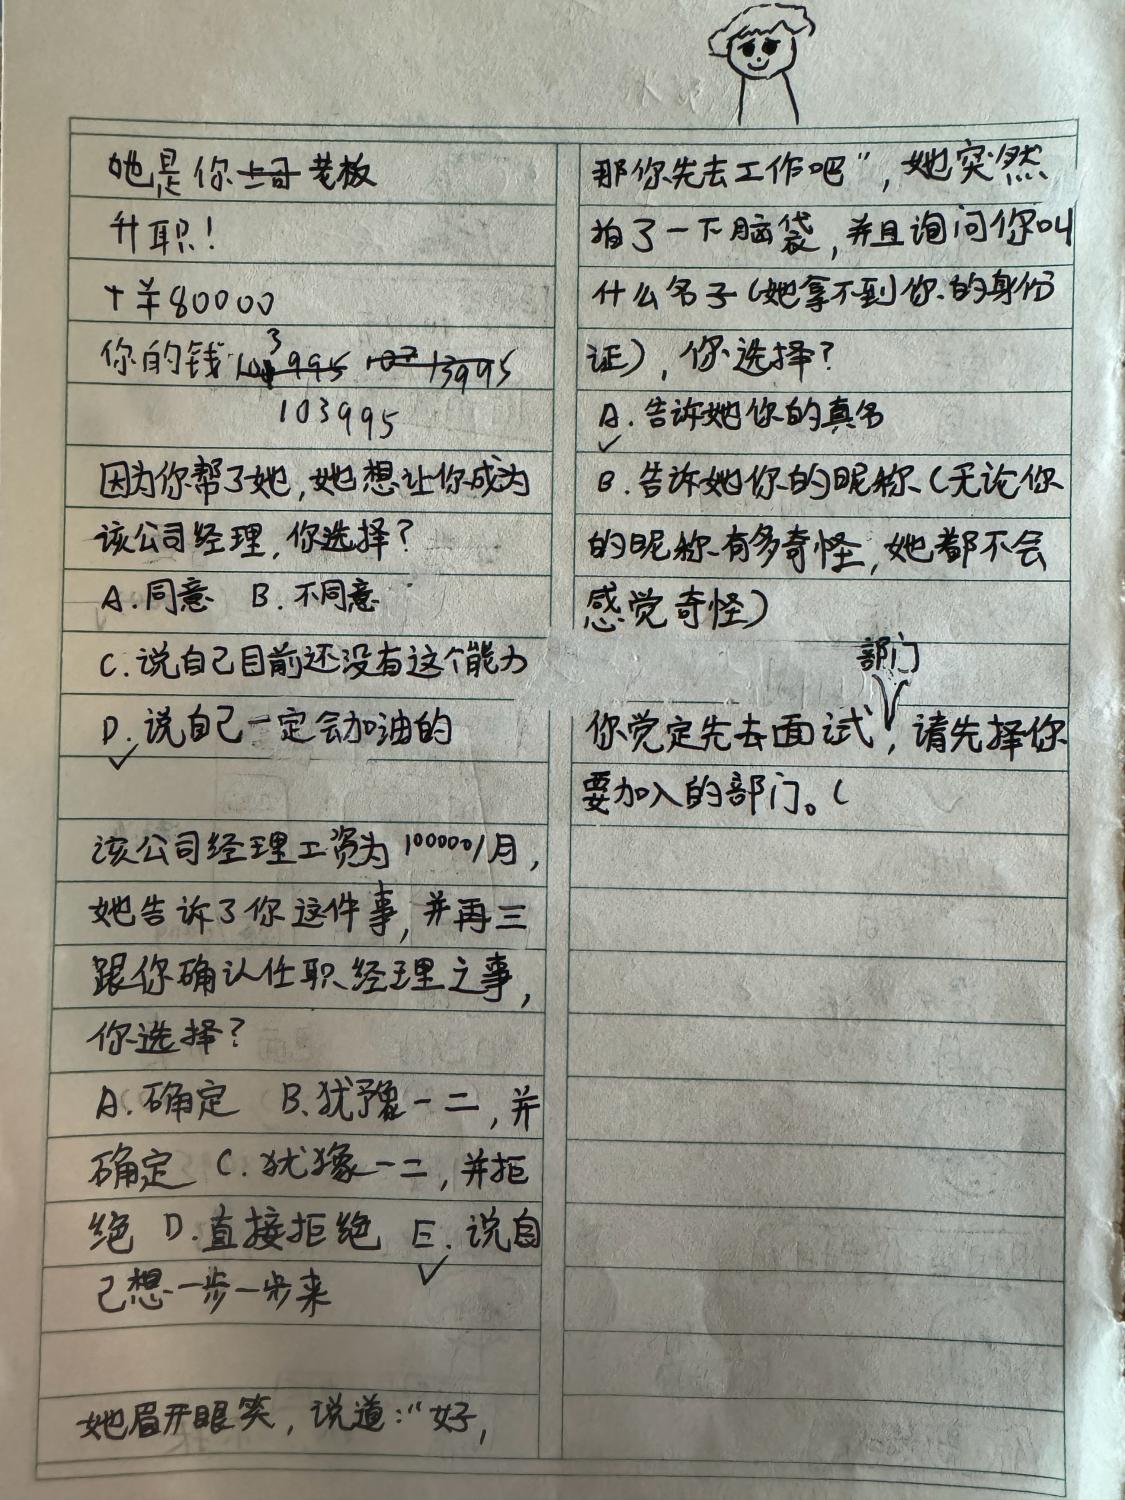 她是你上司老板
升职！
+¥80000
你的钱 103995 10313995
103995
因为你帮了她，她想让你成为
该公司经理，你选择？
A.同意 B.不同意
C.说自己目前还没有这个能力
D.说自己一定会加油的
该公司经理工资为100000/月，
她告诉了你这件事，并再三
跟你确认任职经理之事，
你选择？
A.确定 B.犹豫一二，并
确定 C.犹豫一二，并拒
绝 D.直接拒绝 E.说自
己想一步一步来
她眉开眼笑，说道：“好，
那你先去工作吧”，她突然
拍了一下脑袋，并且询问你叫
什么名子（她拿不到你的身份
证），你选择？
A.告诉她你的真名
B.告诉她你的昵称（无论你
的昵称有多奇怪，她都不会
感觉奇怪）
部门
你觉定先去面试，请先择你
要加入的部门。（